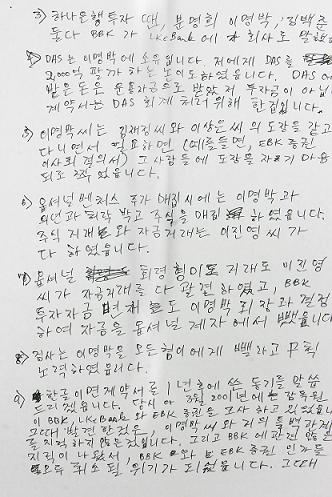 3) 하나은행 투자 때, 분명히 이명박, 김백준
둘다 BBK가 LKeBank에 자회사로 말했습
4) DAS는 이명박에 소유입니다. 저에게 DAS를
2,000억 팔까 하는 논의도 하였습니다. DAS에
받은 돈은 운용자금으로 받았지 투자금이 아닙니
계약서는 DAS 회계 처리 위해 한겁니다.
5) 이명박씨는 김재정씨와 이상은씨의 도장을 갖고
다니면서 필요하면 (예를들면, EBK 증권
이사회 결의서) 그사람들에 도장을 자기 마음
되로 찍었습니다.
6) 옵셔널 벤처스 주가 매집시에는 이명박과
의논과 허락 받고 주식을 매집 하였습니다.
주식 거래와 자금거래는 이진영씨가
다 하였습니다.
7) 옵셔널 거래도 이진영
씨가 자금거래를 다 하였고, BBK
투자자금 도 이명박 회장과 결정
하여 자금을 옵셔널 계좌에서 뺐습니다
8) 검사는 이명박을 모든 혐의에게 빼라고 무척
노력하였습니다.
9) 한글 이면계약서를 1년 후에 쓴 동기를 말씀
드리겠습니다. 당시 아 3월 2001년에 감독원
이 BBK, LKeBank와 EBK 증권은 조사하고 있었습니
그때 발견한것은, 이명박씨와 저의 특별관계
를 지적하지 않은것입니다. 그리고 BBK에 관련 많은
지적이 나와서, BBK와 EBK 증권 인가를
취소 될 위기가 되었습니다. 그때